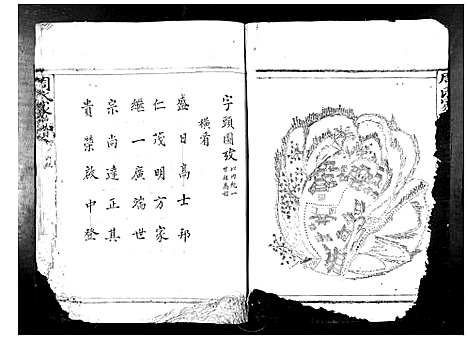 字頭圖攷
橫看
盛日高士邦
仁茂明方家
繼一廣端世
宗尚達正其
貴榮啟中登